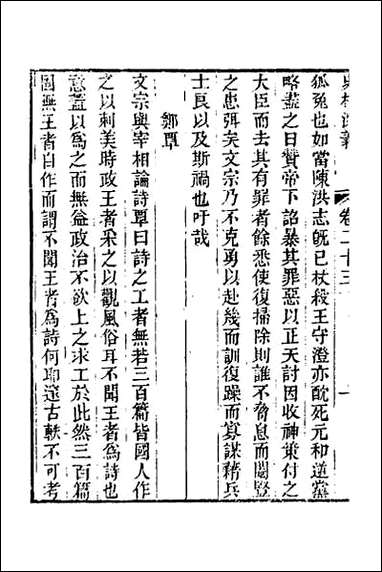 卷二十三
一
狐兔也如當陳洪志既已杖殺王守澄亦酖死元和逆黨
略盡之日贊帝下詔暴其罪惡以正天討因收神策付之
大臣而去其有罪者餘悉使復掃除則誰不脅息而閹豎
之患弭矣文宗乃不克勇以赴幾而訓復躁而寡謀耤兵
士良以及斯禍也吁哉
鄭覃
文宗與宰相論詩覃曰詩之工者無若三百篇皆國人作
之以刺美時政王者采之以觀風俗耳不聞王者為詩也
意葢以為之而無益政治不欲上之求工於此然三百篇
固無王者自作而謂不聞王者為詩何耶邃古軼不可考